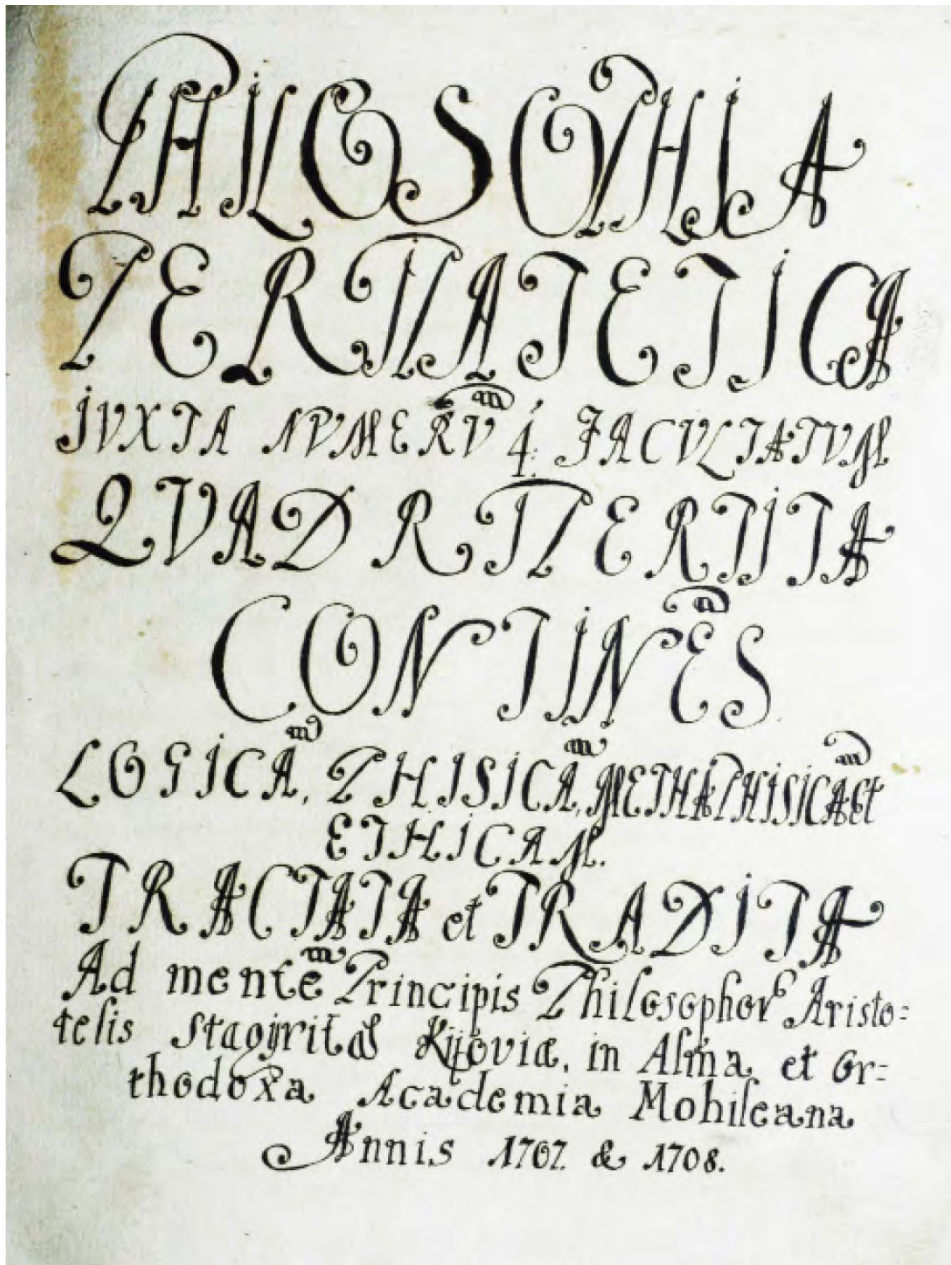 PHILOSOPHIA
PERIPATETICA
JVXTA NVMERV̄ 4. FACVLTATVM
QVADRIPERTITA
CONTINĒS
LOGICA̅, PHISICA̅, METHAPHISICA̅ et
ETHICAM.
TRACTATA et TRADITA
Ad mentē Principis Philosophor Aristo=
telis Stagyritæ Kijoviæ, in Alma et or=
thodoxa Academia Mohileana
Annis 1707. & 1708.